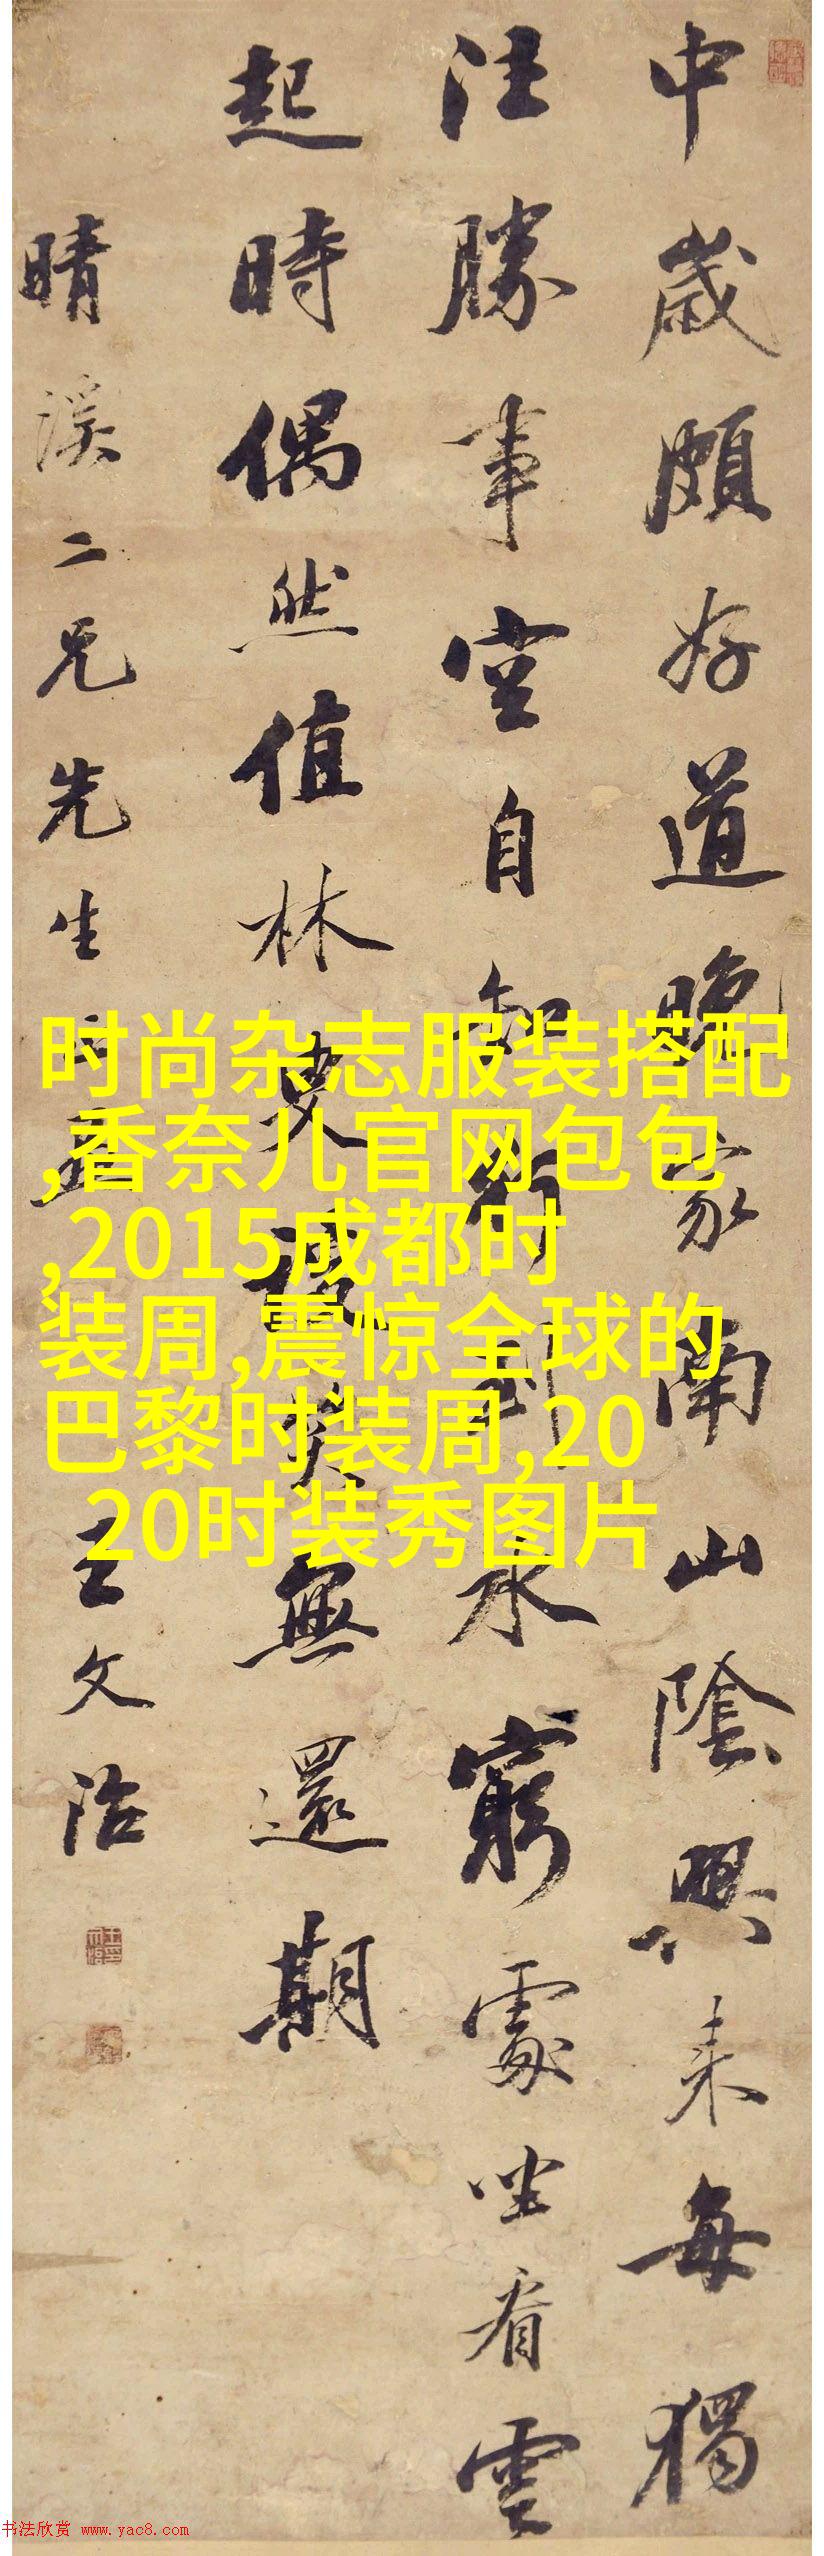 中歲頗好道晚家南山陰興来每獨
往勝事空自知行到水窮處坐看雲
起時偶然值林叟談笑無還期
晴溪二兄先生 王文治
时尚杂志服装搭配
,香奈儿官网包包
,2015成都时
装周,震惊全球的
巴黎时装周,20
20时装秀图片
书法欣赏 www.yac8.com